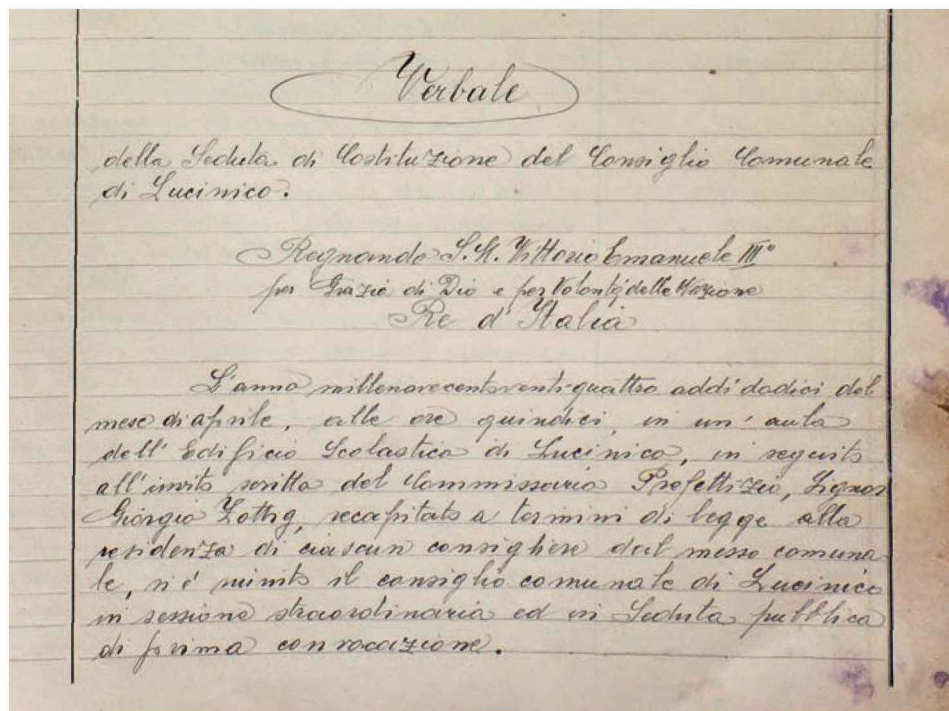 Verbale
della Seduta di Costituzione del Consiglio Comunale
di Lucinico.
Regnando S. M. Vittorio Emanuele III°
per Grazia di Dio e per Volontà della Nazione
Re d'Italia
L'anno millenovecentoventiquattro addì dodici del
mese di aprile, alle ore quindici, in un'aula
dell'Edificio Scolastico di Lucinico, in seguito
all'invito scritto del Commissario Prefettizio, Signor
Giorgio Zottig, recapitato a termini di legge alla
residenza di ciascun consigliere dal messo comuna
le, si è riunito il consiglio comunale di Lucinico
in sessione straordinaria ed in Seduta pubblica
di prima convocazione.